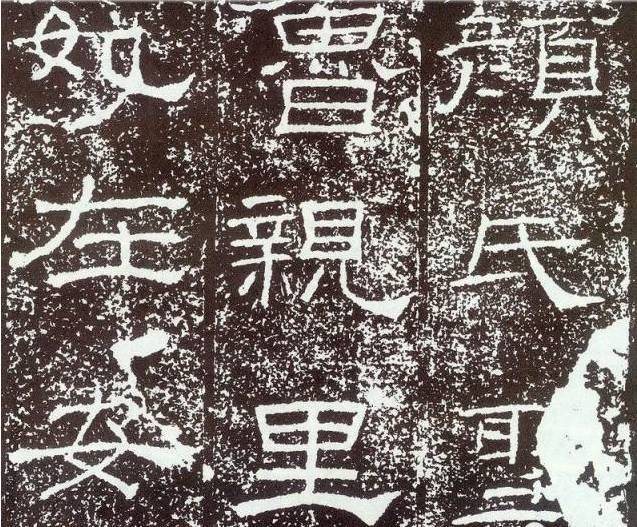 顏氏聖
魯親里
妃在安